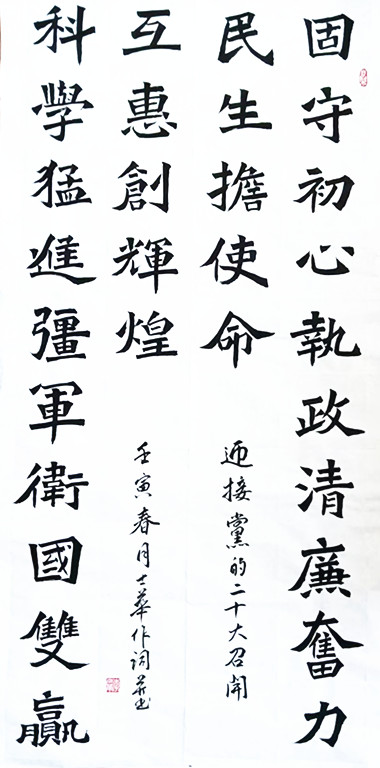 固守初心執政清廉奮力
民生擔使命
迎接黨的二十大召開
科學猛進彊軍衛國雙贏
互惠創輝煌
壬寅春月士華作詞並书